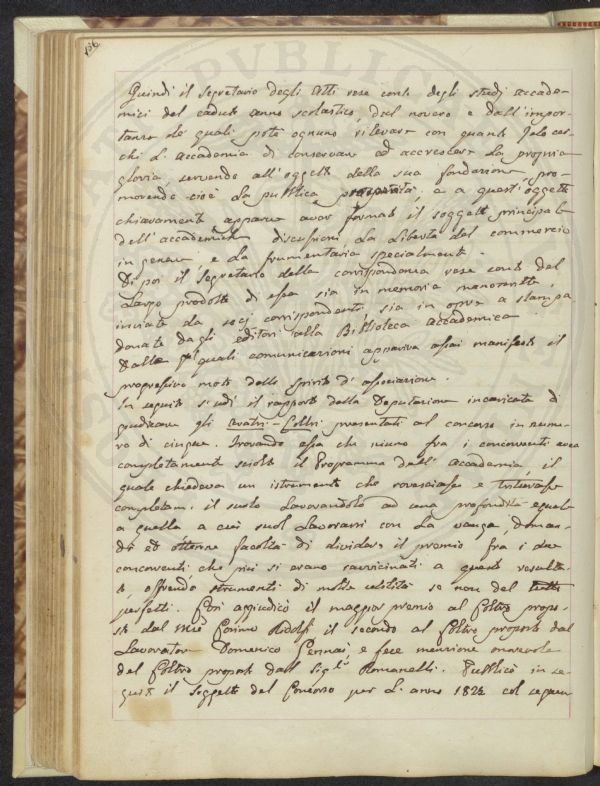 156
Quindi il Segretario degli Atti rese conto degli studj accade-
mici del caduto anno scolastico, dal novero e dall'impor-
tanza de' quali potè ognuno rilevare con quanto zelo cer-
chi L'accademia di conservare ed accrescere la propria
gloria servendo all'oggetto della sua fondazione, pro-
movendo cioè la pubblica prosperità; e a quest'oggetto
chiaramente apparve aver formato il soggetto principale
dell'accademiche discussioni la libertà del commercio
in genere e la frumentaria specialmente.
Di poi il Segretario della corrispondenza rese conto del
Largo prodotto di essa sia in memorie manoscritte
inviate da socj corrispondenti, sia in opere a stampa
donate dagli editori alla Biblioteca accademica.
Dalle quali comunicazioni appariva assai manifesto il
progressivo moto dello spirito d'associazione.
In seguito s'udì il rapporto della Deputazione incaricata di
giudicare gli aratri-Coltri presentati al concorso in nume-
ro di cinque. Trovando essa che niuno fra i concorrenti avea
completamente sciolto il Programma dell'Accademia, il
quale chiedeva un istrumento che rovesciasse e tritasse
completam. il suolo lavorandolo ad una profondità eguale
a quella a cui suol lavorarsi con la vanga, doman-
dò ed ottenne facoltà di dividere il premio fra i due
concorrenti che più si erano avvicinati a questo resulta-
to, offrendo strumenti di molta utilità se non del tutto
perfetti. Così aggiudicò il maggior premio al Coltro propo-
sto dal Mse Cosimo Ridolfi il secondo al Coltro proposto dal
Lavoratore Domenico Pennai, e fece menzione onorevole
del Coltro proposto dall Sigr Romanelli. Pubblicò in se-
guito il soggetto del Concorso per L'anno 1824 col seguen